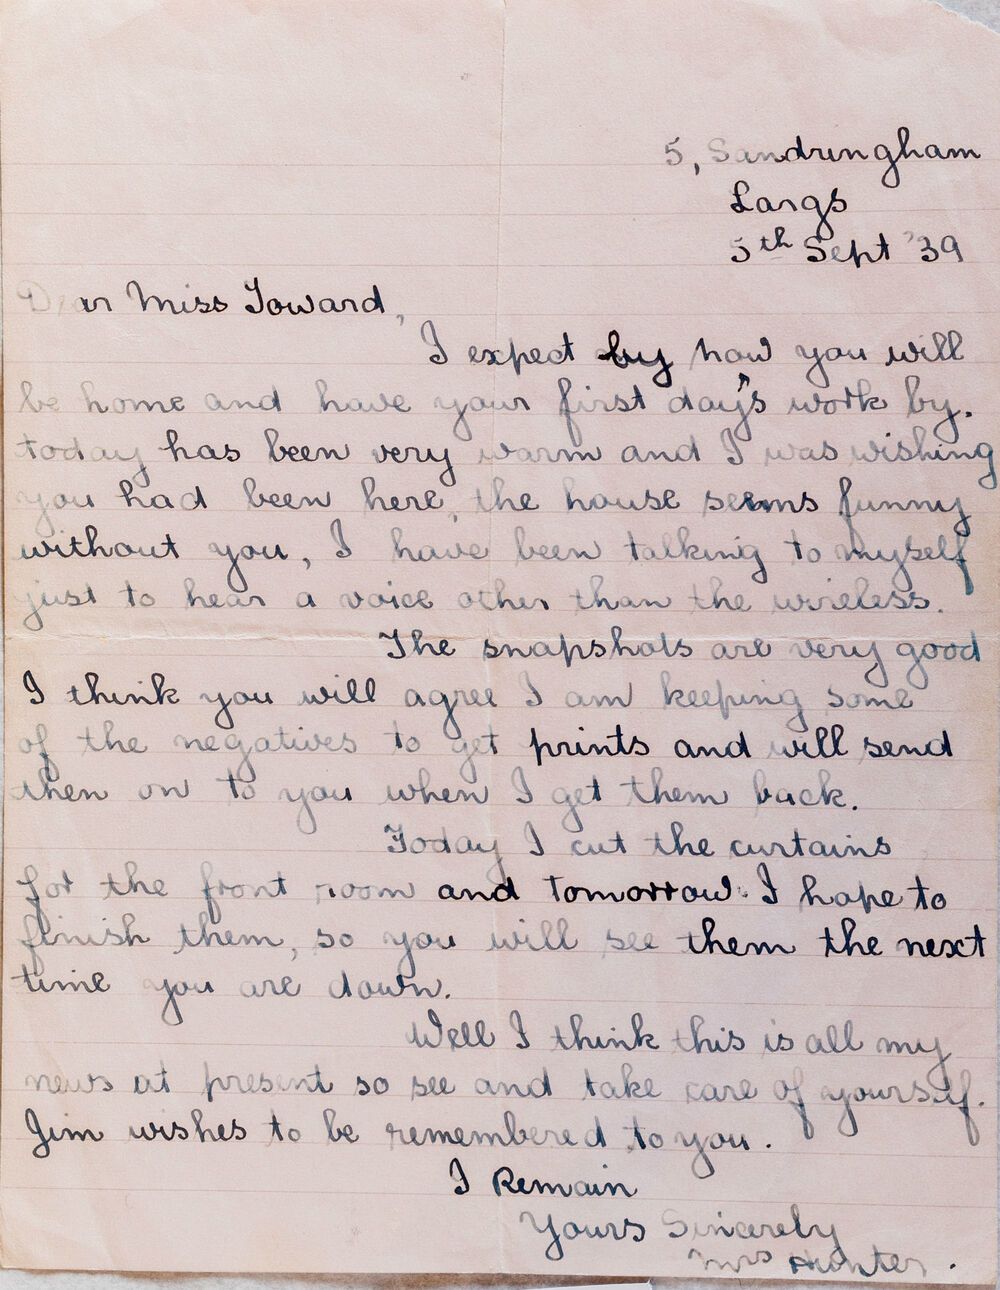 5, Sandringham
Largs
5th Sept '39
Dear Miss Toward,
I expect by now you will
be home and have your first day's work by.
today has been very warm and I was wishing
you had been here, the house seems funny
without you, I have been talking to myself
just to hear a voice other than the wireless.
The snapshots are very good
I think you will agree I am keeping some
of the negatives to get prints and will send
then on to you when I get them back.
Today I cut the curtains
for the front room and tomorrow I hope to
finish them, so you will see them the next
time you are down.
Well I think this is all my
news at present so see and take care of yourself.
Jim wishes to be remembered to you.
I Remain
Yours Sincerely
Mrs Hunter.